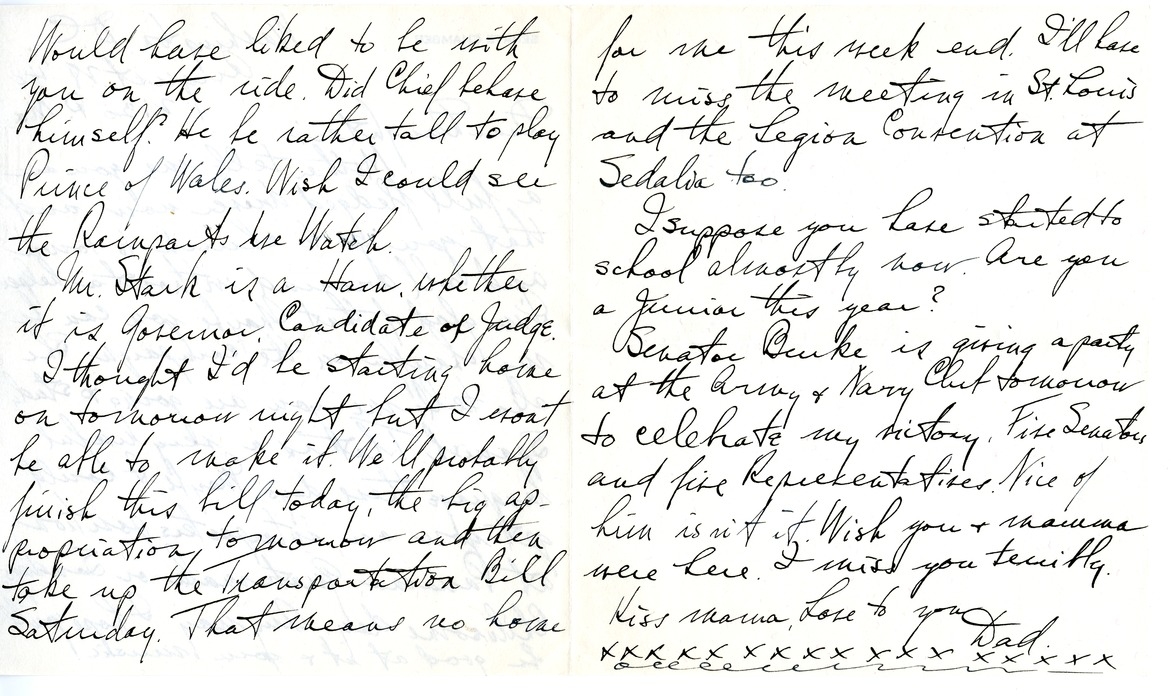 Would have liked to be with
you on the ride. Did Chief behave
himself? He be rather tall to play
Prince of Wales. Wish I could see
the Ramparts We Watch.
Mr. Stark is a Ham, whether
it is Governor, Candidate of Judge.
I thought I'd be starting home
on tomorrow night but I won't
be able to make it. We'll probably
finish this bill today, the big ap-
propriation, tomorrow and then
take up the Transportation Bill
Saturday. That means no home
for me this week end. I'll have
to miss the meeting in St. Louis
and the Legion Convention at
Sedalia too.
I suppose you have started to
school almostly now. Are you
a Junior this year?
Senator Burke is giving a party
at the Army & Navy Club tomorrow
to celebrate my victory. Five Senators
and five Representatives. Nice of
him isn't it. Wish you & mamma
were here. I miss you terribly.
Kiss mama, Love to you
Dad.
x x x x x x x x x x x x x x x x x